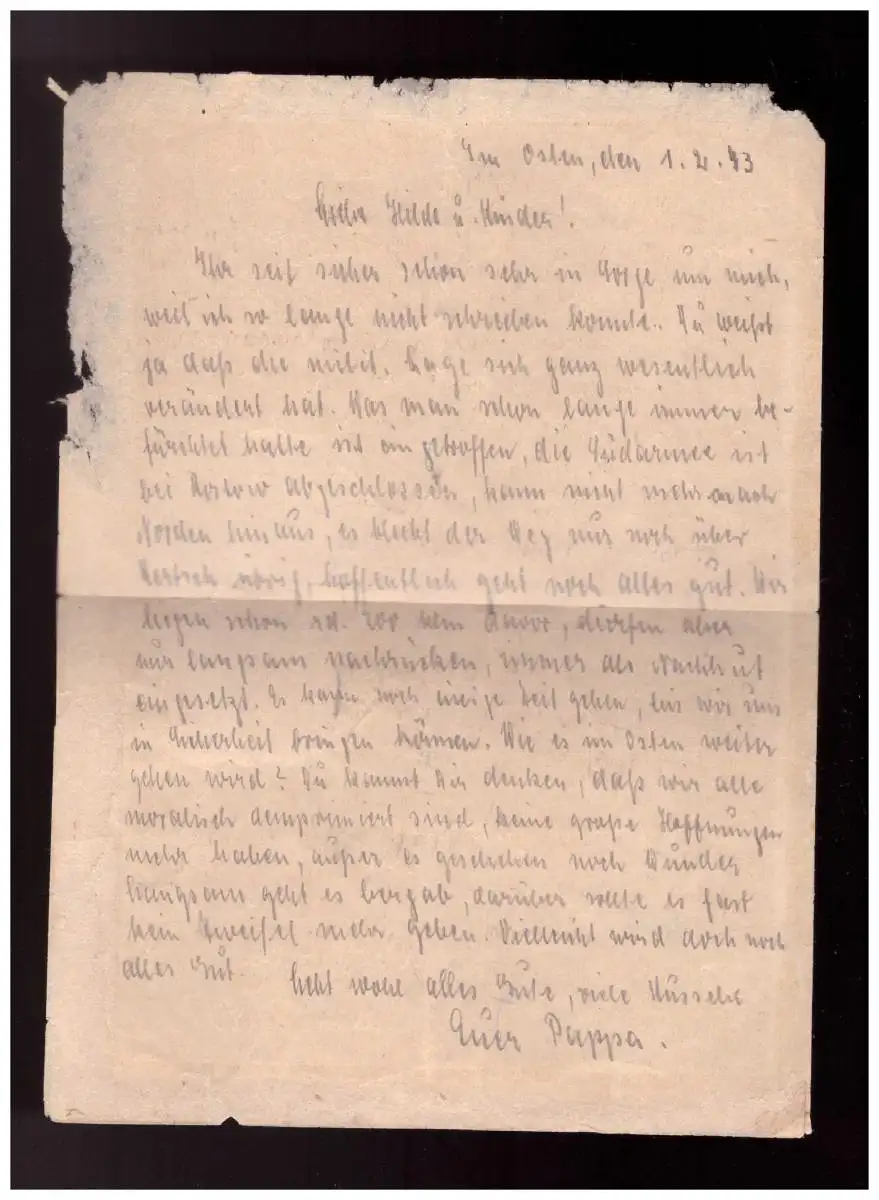 Im Osten, den 1.2.43
Liebe Hilde u. Kinder!
Ihr seit sicher schon sehr in Sorge um mich,
weil ich so lange nicht schreiben konnte. Du weißt
ja daß die milit. Lage sich ganz wesentlich
verändert hat. Was man schon lange immer be-
fürchtet hatte ist eingetroffen, die Südarmee ist
bei Rostow abgeschlossen, kann nicht mehr nach
Norden hinaus, es bleibt der Weg nur noch über
Kertsch übrig, hoffentlich geht noch alles gut. Wir
liegen schon ca. 200 klm davor, dürfen aber
nur langsam nachrücken, immer als Nachhut
eingesetzt. Es kann noch einige Zeit gehen, bis wir uns
in Sicherheit bringen können. Wie es im Osten weiter
gehen wird? Du kannst Dir denken, daß wir alle
moralisch demprimiert sind, keine große Hoffnungen
mehr haben, außer es geschehen noch Wunder
Langsam geht es bergab, darüber sollte es fast
kein Zweifel mehr geben. Vielleicht wird doch noch
alles Gut.
Lebt wohl alles Gute, viele Küssele
Euer Pappa.